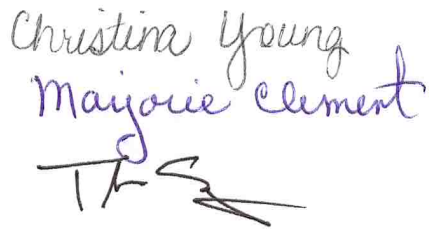 Christina Young
Marjorie Clement